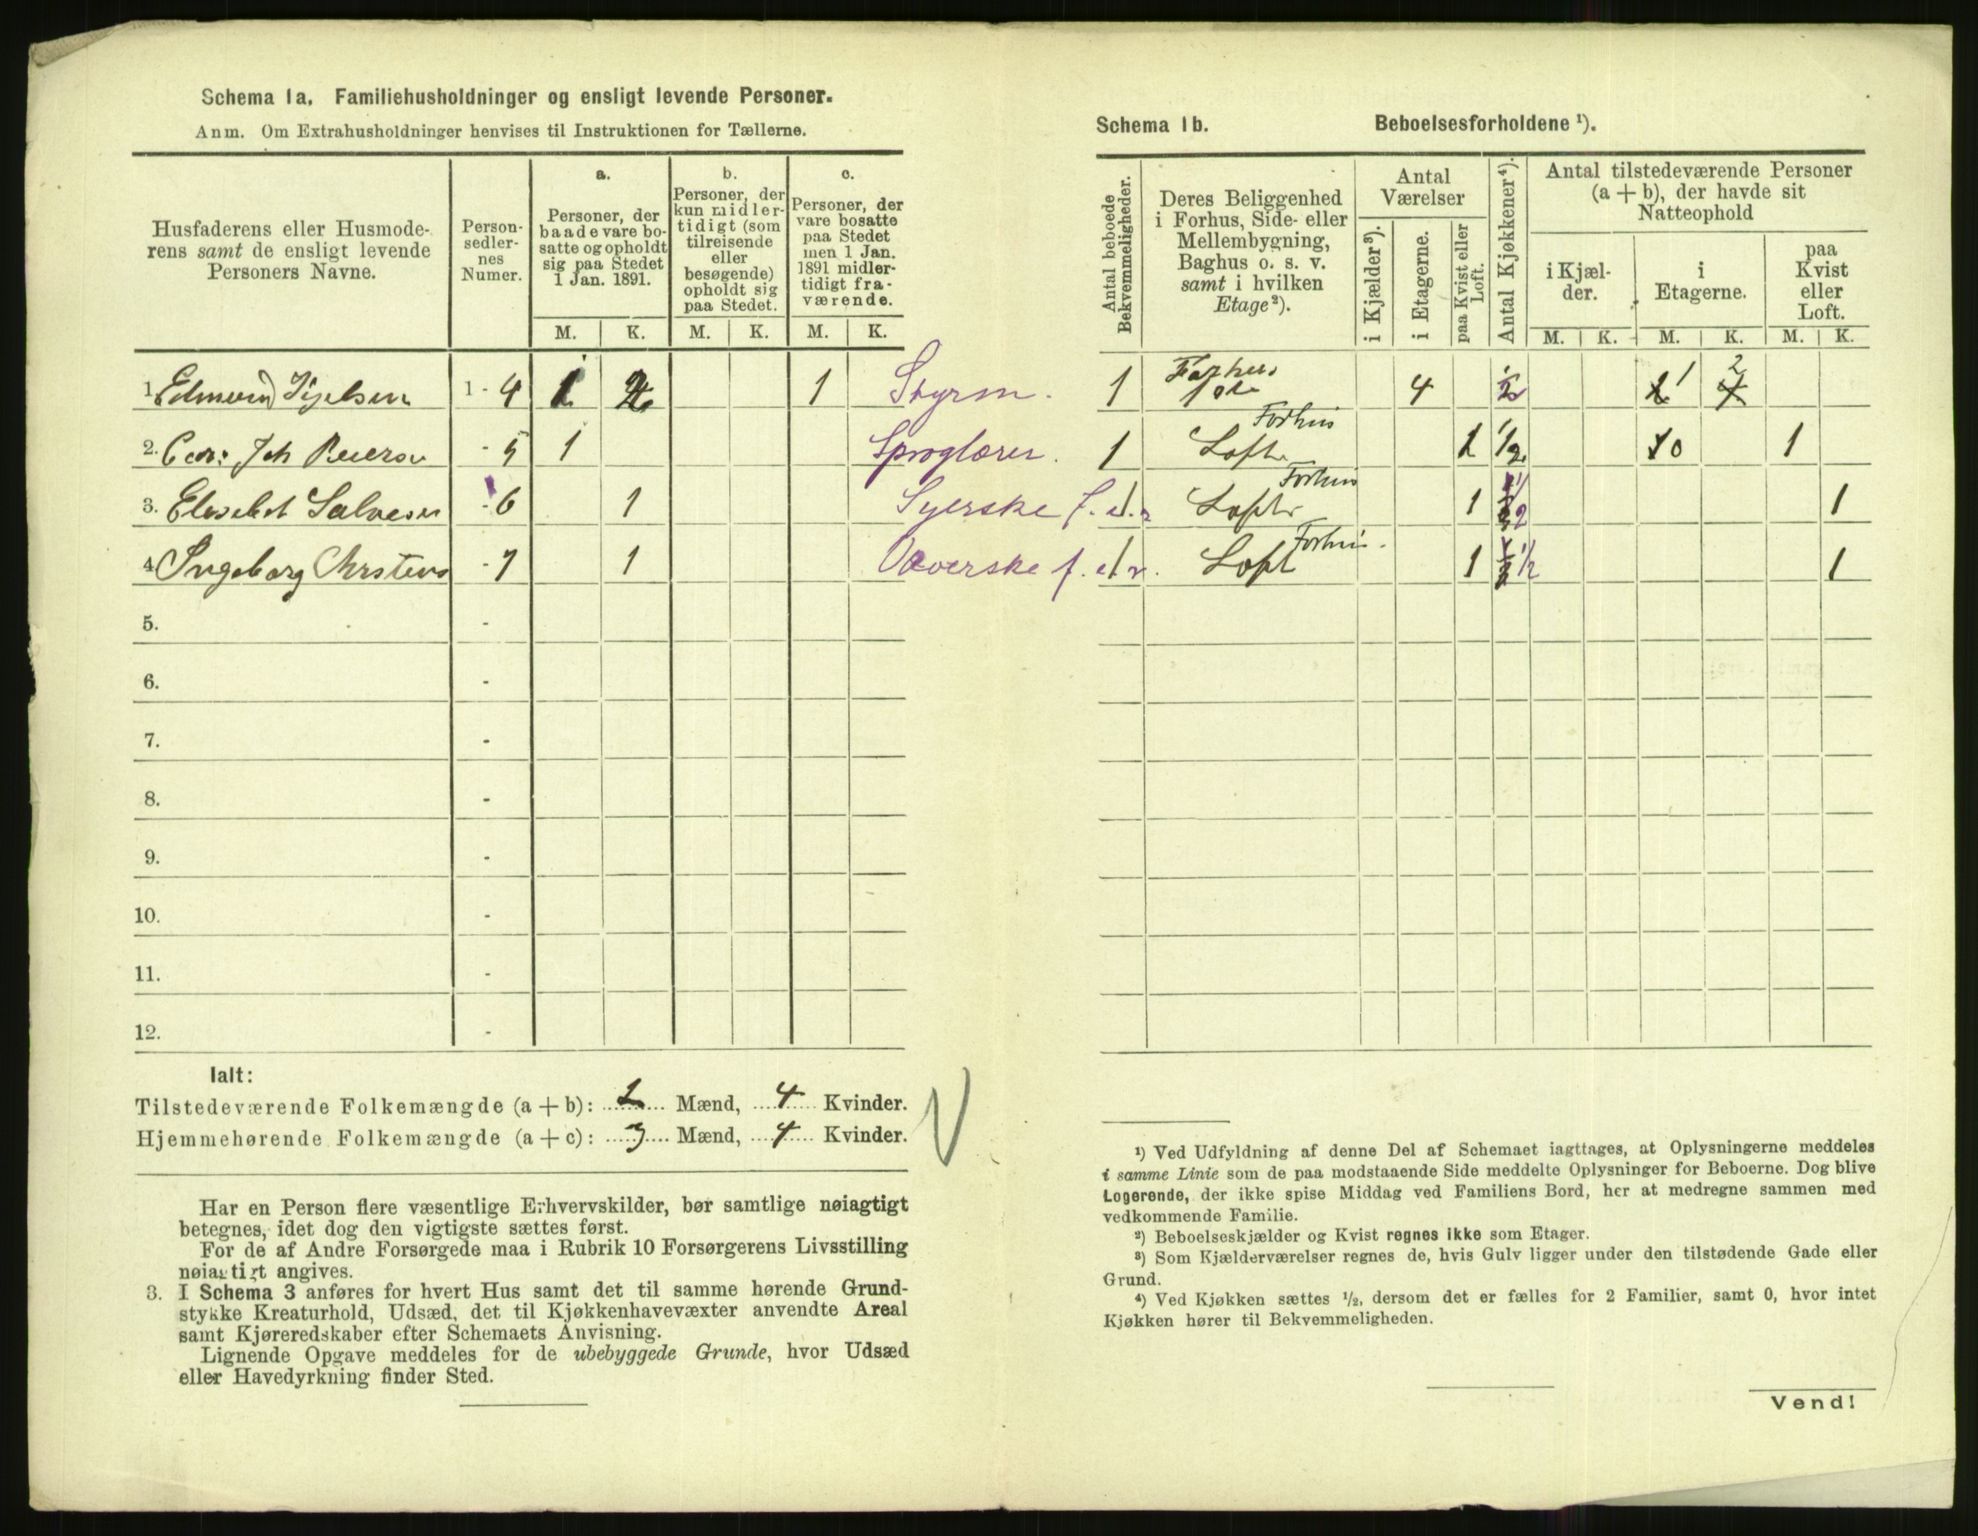 Schema 1a. Familiehusholdninger og ensligt levende Personer.
Anm. Om Extrahusholdninger henvises til Instruktionen for Tællerne.
Husfaderens eller Husmode-
rens samt de ensligt levende
Personers Navne.
Person-
sedler-
nes
Numer.
a.
Personer, der
baade vare bo-
satte og opholdt
sig paa Stedet
1 Jan. 1891.
b.
Personer, der
kun midler-
tidigt (som
tilreisende
eller
besøgende)
opholdt sig
paa Stedet.
c.
Personer, der
vare bosatte
paa Stedet
men 1 Jan.
1891 midler-
tidigt fra-
værende.
M. K. M. K. M. K.
1. Edmund 1 - 4 1 2 1 Styrm.
2. Joh - 5 1 Sproglærer.
3. Elisabet Salvesen - 6 1 Syerske f. e. r.
4. Ingeborg - 7 1 Væverske f. e. r.
5. -
6. -
7. -
8. -
9. -
10. -
11. -
12. -
Ialt:
Tilstedeværende Folkemængde (a + b): 2 Mænd, 4 Kvinder.
Hjemmehørende Folkemængde (a + c): 3 Mænd, 4 Kvinder.
Har en Person flere væsentlige Erhvervskilder, bør samtlige nøiagtigt
betegnes, idet dog den vigtigste sættes først.
For de af Andre Forsørgede maa i Rubrik 10 Forsørgerens Livsstilling
nøiagtigt angives.
3. I Schema 3 anføres for hvert Hus samt det til samme hørende Grund-
stykke Kreaturhold, Udsæd, det til Kjøkkenhavevæxter anvendte Areal
samt Kjøreredskaber efter Schemaets Anvisning.
Lignende Opgave meddeles for de ubebyggede Grunde, hvor Udsæd
eller Havedyrkning finder Sted.
Schema 1b. Beboelsesforholdene ¹).
Antal beboede
Bekvemmeligheder.
Deres Beliggenhed
i Forhus, Side- eller
Mellembygning,
Baghus o. s. v.
samt i hvilken
Etage²).
Antal
Værelser
i Kjælder³).
i Etagerne.
paa Kvist eller
Loft.
Antal Kjøkkener⁴).
Antal tilstedeværende Personer
(a + b), der havde sit
Natteophold
i Kjæl-
der.
i
Etagerne.
paa
Kvist
eller
Loft.
M. K. M. K. M. K.
1 Forhus 4 1/2 1 2
Forhus
1 Loft 1 1/2 0 1
Forhus
1 Loft 1 1/2 1
Forhus.
1 Loft 1 1/2 1
¹) Ved Udfyldning af denne Del af Schemaet iagttages, at Oplysningerne meddeles
i samme Linie som de paa modstaaende Side meddelte Oplysninger for Beboerne. Dog blive
Logerende, der ikke spise Middag ved Familiens Bord, her at medregne sammen med
vedkommende Familie.
²) Beboelseskjælder og Kvist regnes ikke som Etager.
³) Som Kjælderværelser regnes de, hvis Gulv ligger under den tilstødende Gade eller
Grund.
⁴) Ved Kjøkken sættes ½, dersom det er fælles for 2 Familier, samt 0, hvor intet
Kjøkken hører til Bekvemmeligheden.
Vend!